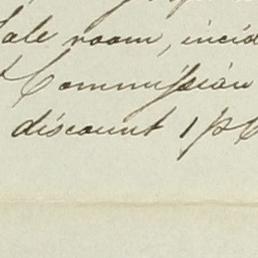 Sale room, incid
Commission
discount 1 p C